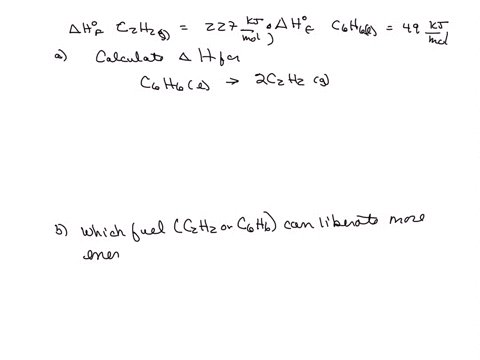 ΔH°f C2H2(g) = 227 kJ/mol; ΔH°f C6H6(l) = 49 kJ/mol
a) Calculate ΔH for
C6H6(l) → 2C2H2(g)
b) Which fuel (C2H2 or C6H6) can liberate more
ener